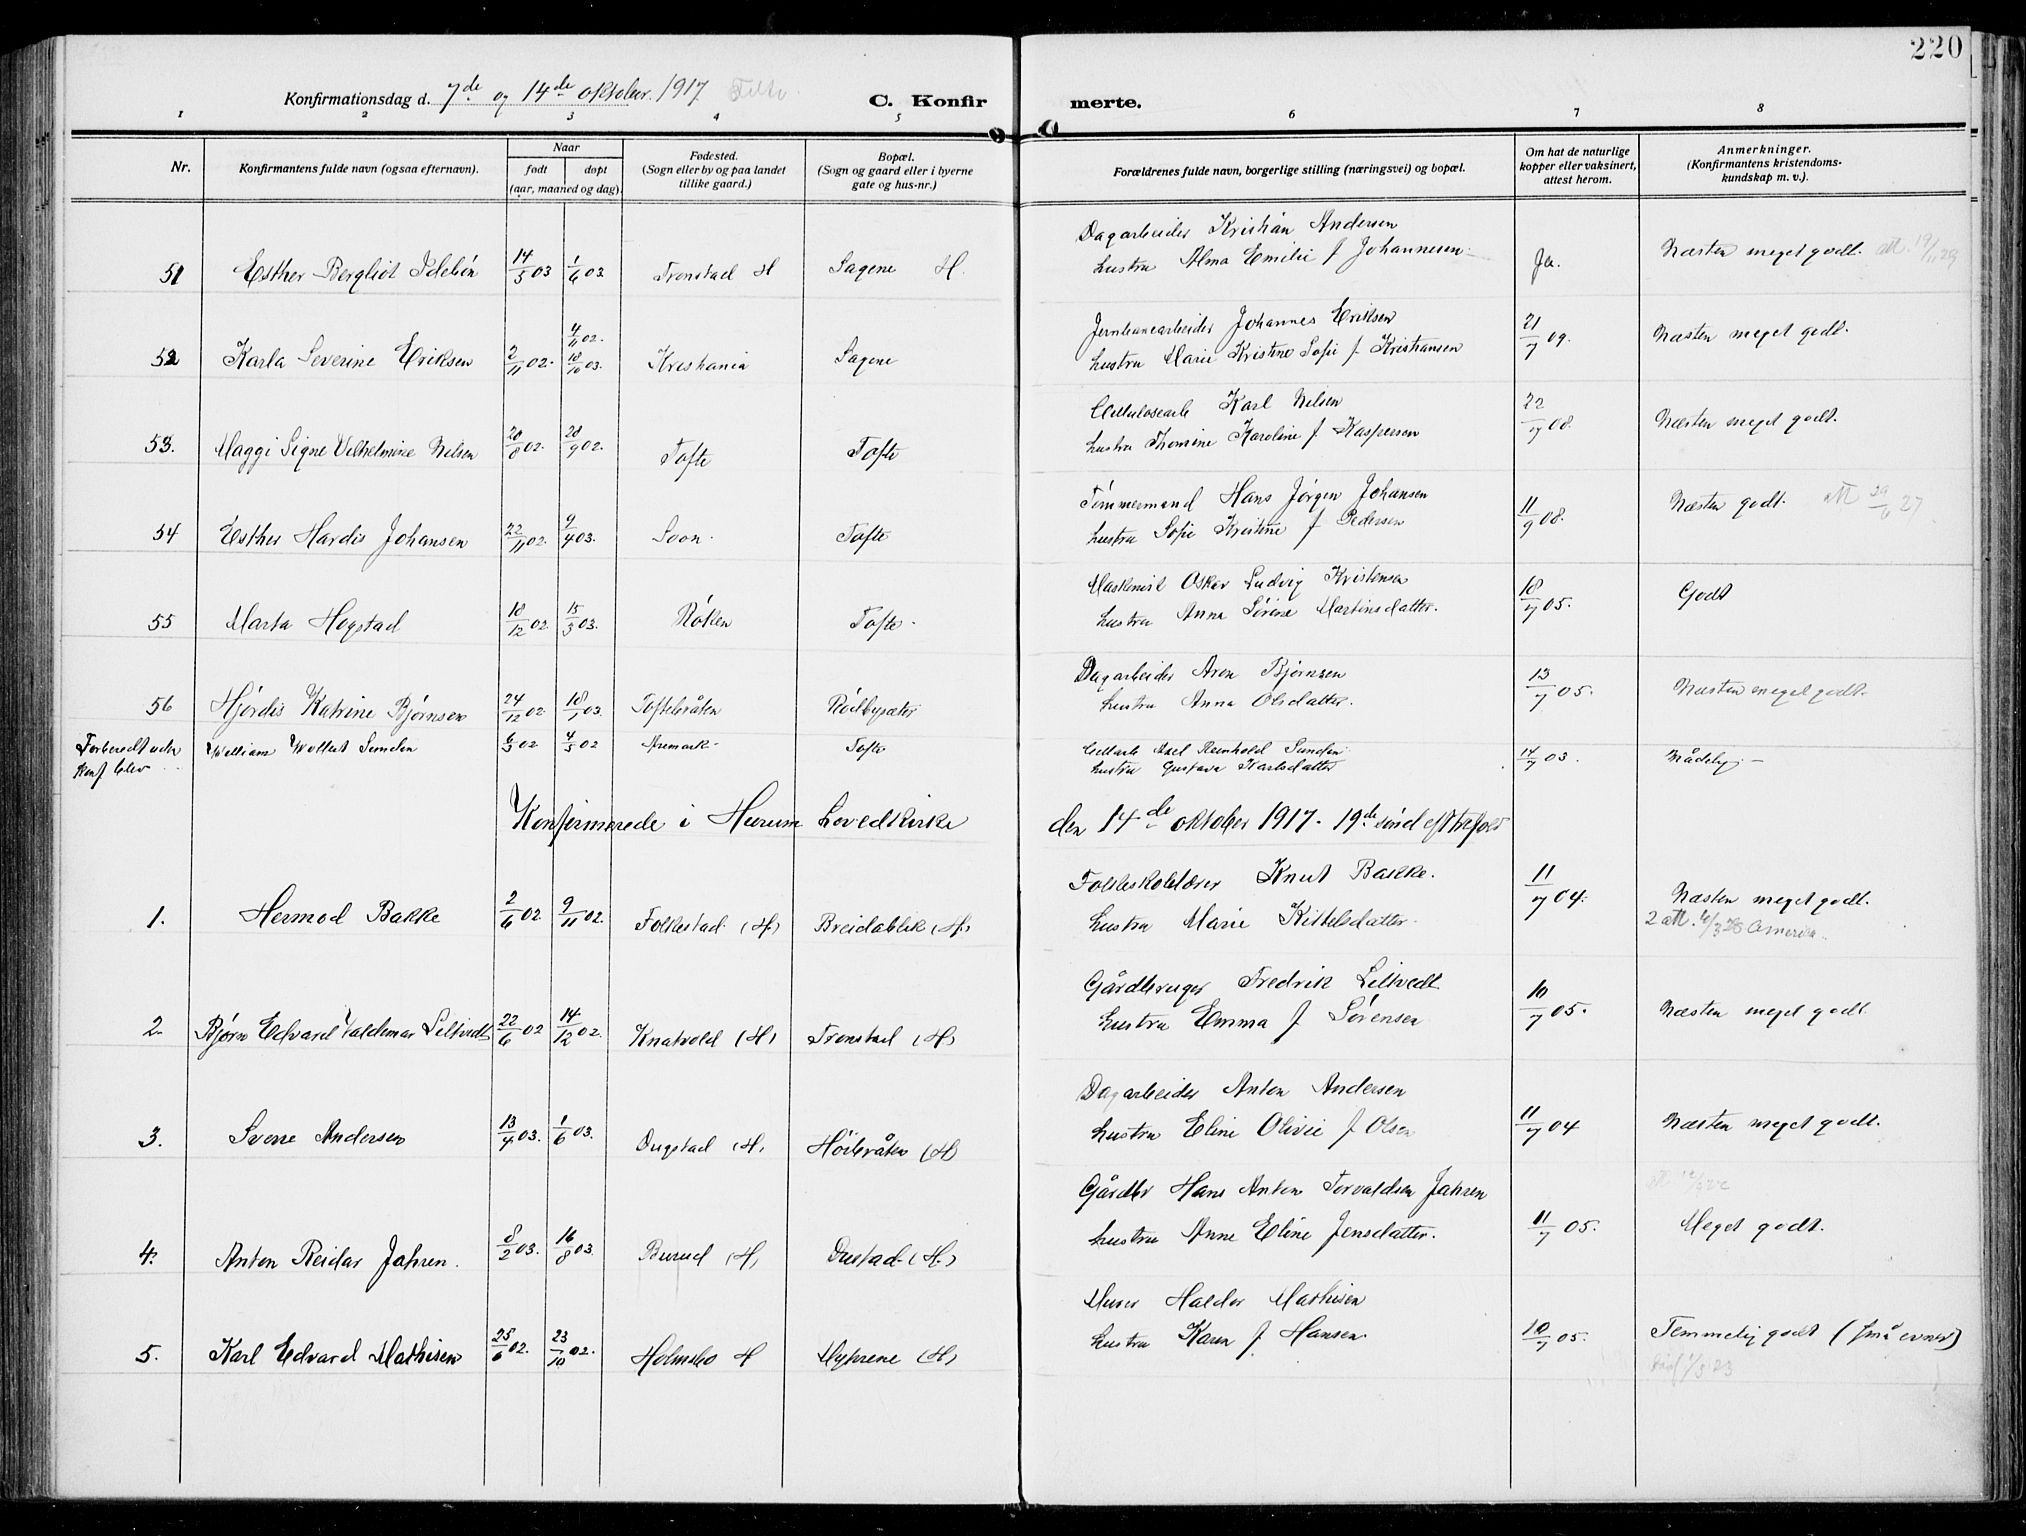 220
Konfirmationsdag d. 7de og 14de oktober. 1917
C. Konfir merte.
1 2 3 4 5 6 7 8
Nr. Konfirmantens fulde navn (ogsaa efternavn). Naar født døpt (aar, maaned og dag). Fødested. (Sogn eller by og paa landet tillike gaard.) Bopæl. (Sogn og gaard eller i byerne gate og hus-nr.) Forældrenes fulde navn, borgerlige stilling (næringsvei) og bopæl. Om hat de naturlige kopper eller vaksinert, attest herom. Anmerkninger. (Konfirmantens kristendomskundskap m. v.).
Dagarbeider Kristian Andersen
51 Esther Bergliot 14/5 03 1/6 03 Tronstad H Sagene H. hustru Alma Emilie f Johannesen Ja. Næsten meget godt. att. 19/11 29
Jernbanearbeider Johannes Eriksen
52 Karla Severine Eriksen 2/11 02. 4/11 02. 18/10 03. Kristiania Sagene hustru Marie Kristine Sofie f. Kristiansen 21/7 09. Næsten meget godt.
Cellulosearb Karl Nilsen
53. Maggi Signe Vilhelmine Nilsen 20/8 02. 28/9 02. Tofte Tofte hustru Thomine Karoline f Kaspersen 22/7 08. Næsten meget godt.
Tømmermand Hans Jørgen Johansen
54 Esther Hardis Johansen 22/11 02. 9/4 03. Soon. Tofte hustru Sofie Kristine f Pedersen 11/9 08. Næsten godt. att 29/6 27
Maskinist Oskar Ludvig Kristensen
55 Marta Hogstad 18/12 02 15/3 03. Røken Tofte. hustru Anna Sørine Martinsdatter. 18/7 05. Godt
Dagarbeider Aron Bjørnsen
56 Hjørdis Katrine Bjørnsen 24/12 02 18/1 03. Toftebråten Rødbysæter hustru Anna Olsdatter. 13/7 05. Næsten meget godt.
Forberedt uden konf blev William Sundin 6/3 02 4/5 02 Aremark Tofte Cellarb Axel Reinhold Sundin hustru Gustava Karlsdatter 14/7 03. Mådelig
Konfirmerede i Hurum hovedkirke den 14de oktober 1917. 19de sønd eft trefold
Folkeskolelærer Knut Bakke.
1. Hermod Bakke 2/6 02. 9/11 02. Folkestad (H) Breidablik (H) hustru Marie Kittelsdatter 11/7 04. Næsten meget godt.
2 att. 6/3 28 America.
Gårdbruger Fredrik Liltvedt
2 Bjørn Edvard Valdemar Liltvedt 22/6 02 14/12 02. Knatvold (H) Tronstad (H) hustru Emma f Sørensen 10/7 05. Næsten meget godt
Dagarbeider Anton Andersen
3. Sverre Andersen 13/4 03. 1/6 03. Dugstad (H) Høibråten (H) hustru Eline Olivie f Olsen 11/7 04 Næsten meget godt.
Gårdbr Hans Anton Torvaldsen Jahren
4. Anton Reidar Jahren. 8/2 03. 16/8 03. Burud (H) Dustad (H) hustru Anne Eline Jensdatter. 11/7 05. Meget godt.
Murer Haldor Mathisen
5. Karl Edvard Mathisen 25/6 02. 23/10 02. Holmsbo H Myhrene (H) hustru Karen f Hansen. 10/7 05. Temmelig godt (små evner)